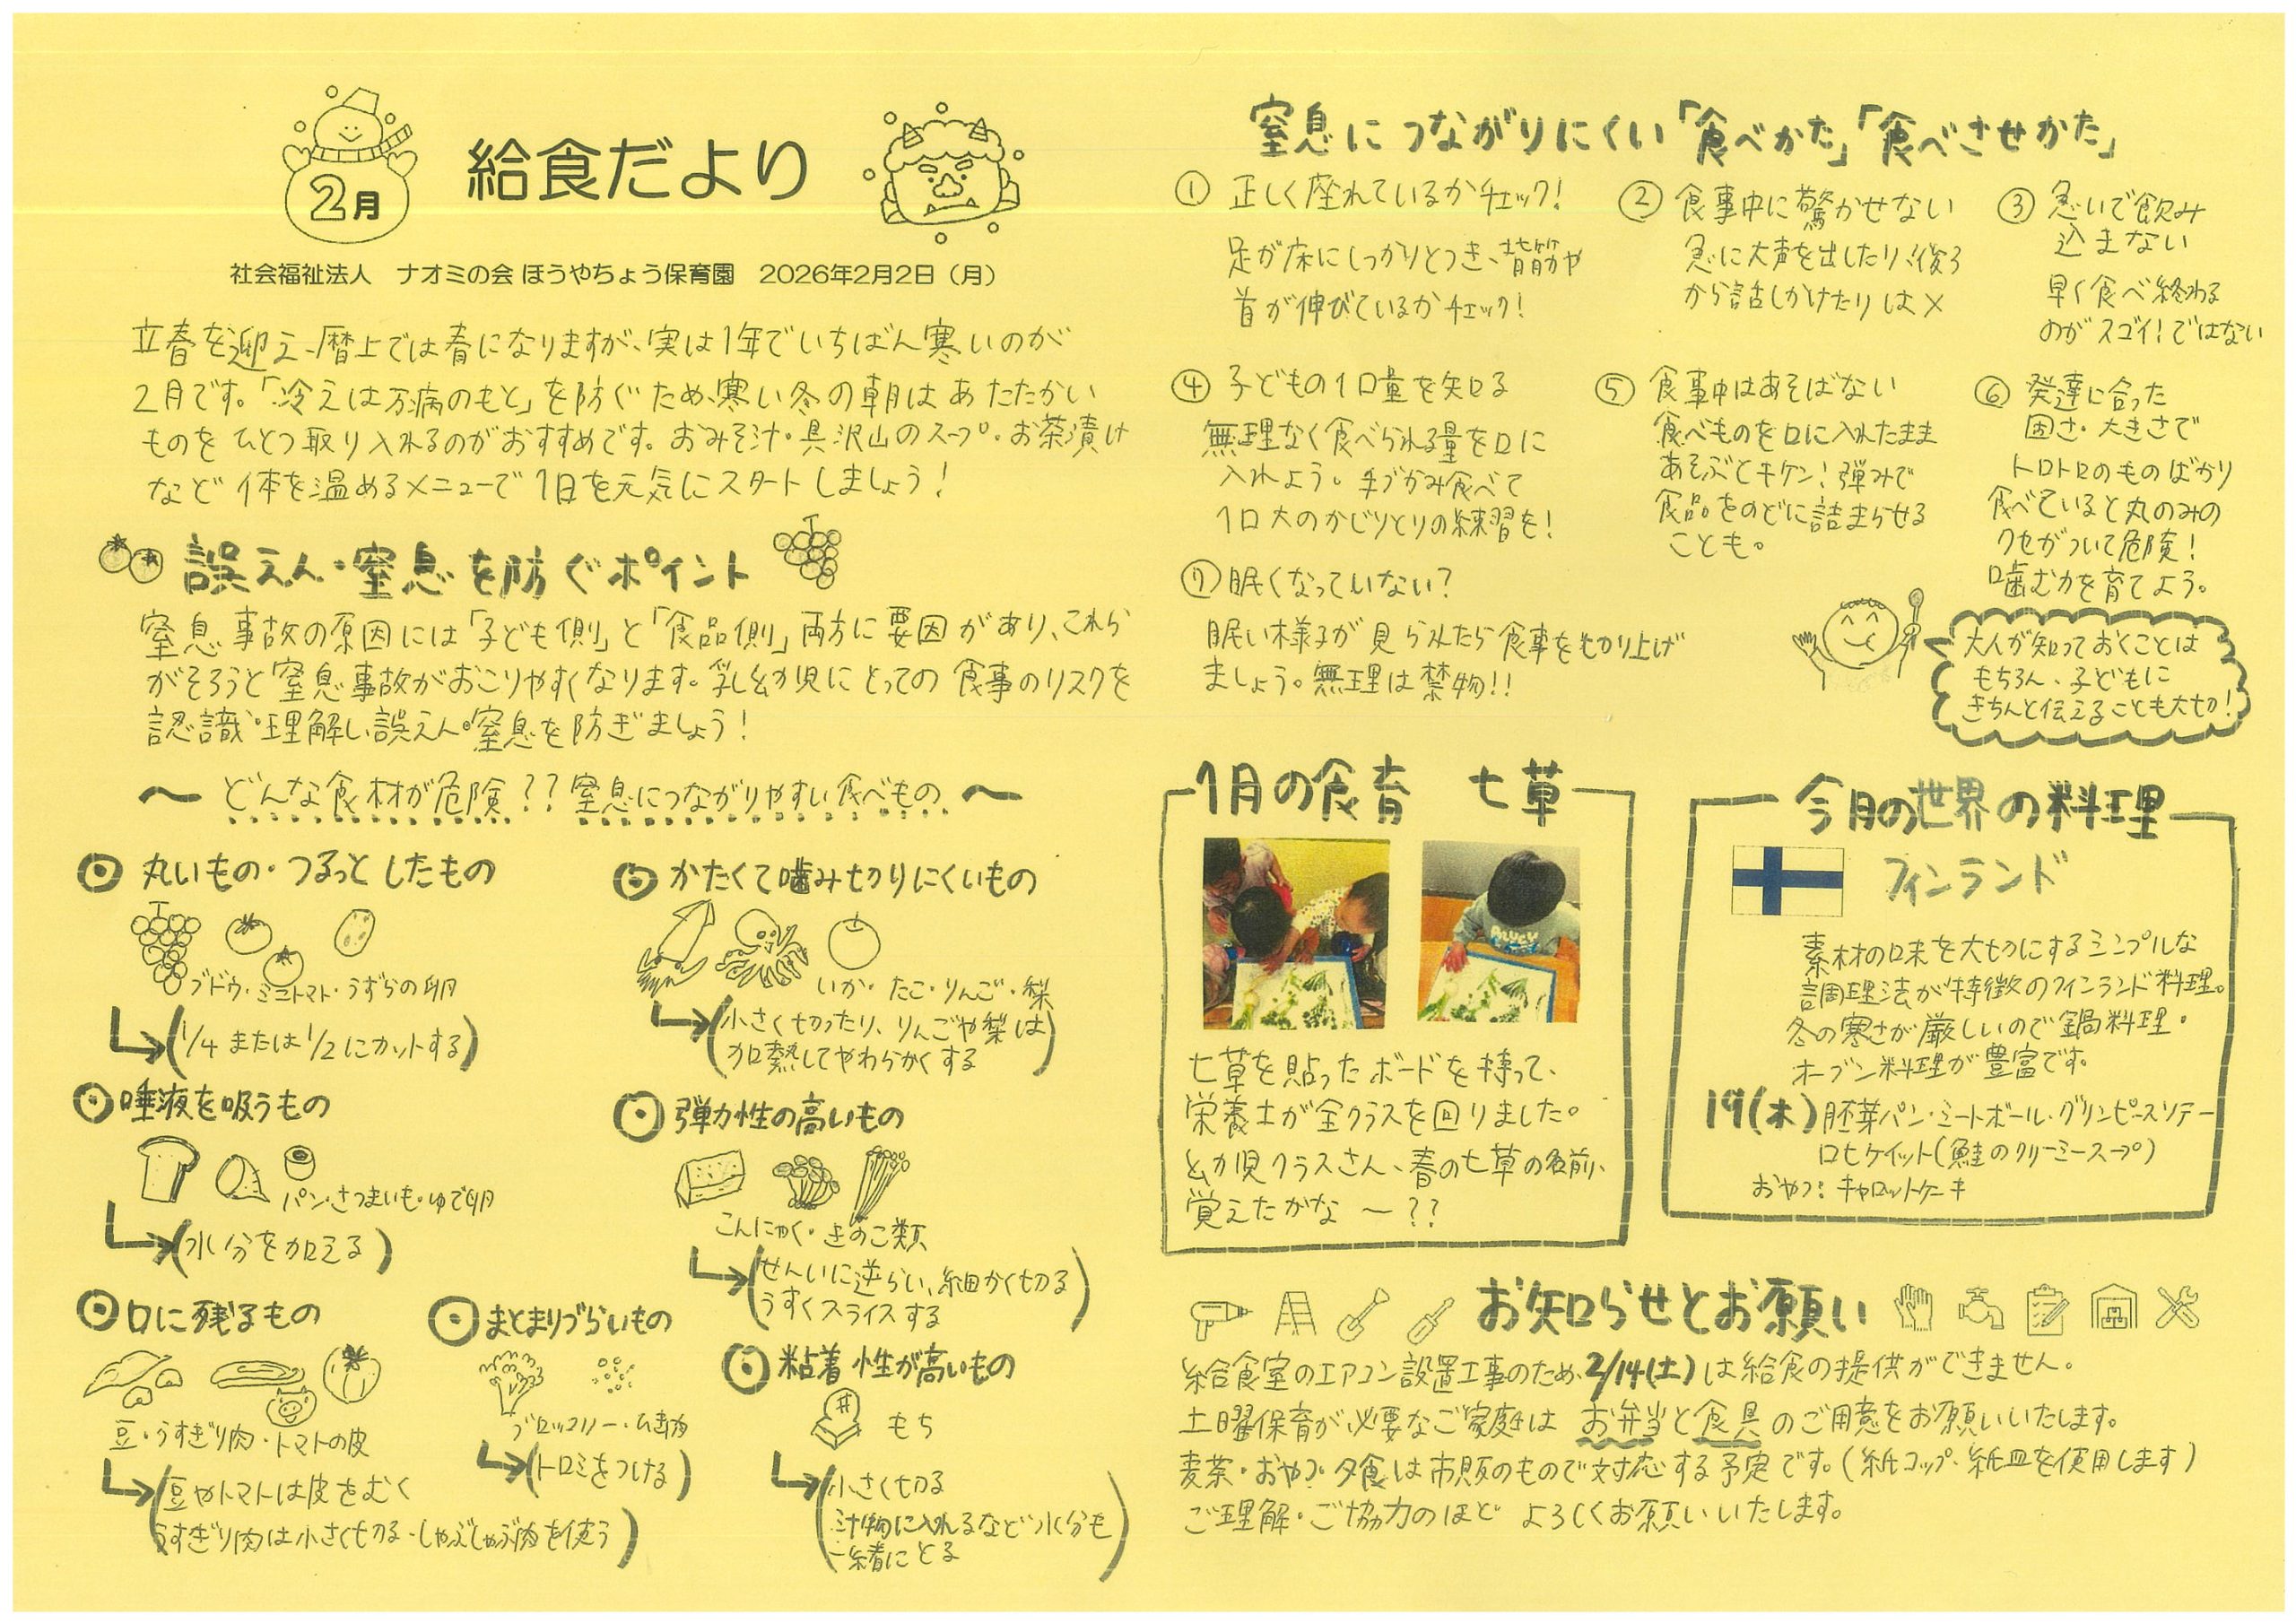 2月
給食だより
社会福祉法人　ナオミの会 ほうやちょう保育園　2026年2月2日（月）
立春を迎え、暦上では春になりますが、実は1年でいちばん寒いのが
2月です。「冷えは万病のもと」を防ぐため、寒い冬の朝はあたたかい
ものをひとつ取り入れるのがおすすめです。おみそ汁・具沢山のスープ・お茶漬け
など体を温めるメニューで1日を元気にスタートしましょう！
誤えん・窒息を防ぐポイント
窒息事故の原因には「子ども側」と「食品側」両方に要因があり、これら
がそろうと窒息事故がおこりやすくなります。乳幼児にとっての食事のリスクを
認識・理解し、誤えん・窒息を防ぎましょう！
〜どんな食材が危険？？窒息につながりやすい食べもの〜
丸いもの・つるっとしたもの
ブドウ・ミニトマト・うずらの卵
(1/4 または 1/2 にカットする)
かたくて噛み切りにくいもの
いか・たこ・りんご・梨
(小さく切ったり、りんごや梨は
加熱してやわらかくする)
唾液を吸うもの
パン・さつまいも・ゆで卵
(水分を加える)
弾力性の高いもの
こんにゃく・きのこ類
(せんいに逆らい、細かく切る
うすくスライスする)
口に残るもの
豆・うすぎり肉・トマトの皮
(豆やトマトは皮をむく
うすぎり肉は小さく切る・しゃぶしゃぶ肉を使う)
まとまりづらいもの
ブロッコリー・ひき肉
(トロミをつける)
粘着性が高いもの
もち
(小さく切る
汁物に入れるなど水分も
一緒にとる)
窒息につながりにくい「食べかた」「食べさせかた」
① 正しく座れているかチェック！
足が床にしっかりとつき、背筋や
首が伸びているかチェック！
② 食事中に驚かせない
急に大声を出したり、後ろ
から話しかけたりは×
③ 急いで飲み
込まない
早く食べ終わる
のがスゴイ！ではない
④ 子どもの1口量を知る
無理なく食べられる量を口に
入れよう。手づかみ食べで
1口大のかじりとりの練習を！
⑤ 食事中はあそばない
食べものを口に入れたまま
あそぶとキケン！弾みで
食品をのどに詰まらせる
ことも。
⑥ 発達に合った
固さ・大きさで
トロトロのものばかり
食べていると丸のみの
クセがついて危険！
噛む力を育てよう。
⑦ 眠くなっていない？
眠い様子が見られたら食事をきり上げ
ましょう。無理は禁物!!
大人が知っておくことは
もちろん、子どもに
きちんと伝えることも大切！
1月の食育　七草
七草を貼ったボードを持って、
栄養士が全クラスを回りました。
幼児クラスさん、春の七草の名前、
覚えたかな〜？？
今月の世界の料理
フィンランド
素材の味を大切にするシンプルな
調理法が特徴のフィンランド料理。
冬の寒さが厳しいので鍋料理・
オーブン料理が豊富です。
19(木) 胚芽パン・ミートボール・グリンピースソテー
ロヒケイット(鮭のクリーミースープ)
おやつ：キャロットケーキ
お知らせとお願い
給食室のエアコン設置工事のため、2/14(土)は給食の提供ができません。
土曜保育が必要なご家庭は お弁当と食具のご用意をお願いいたします。
麦茶・おやつ・夕食は市販のもので対応する予定です。(紙コップ・紙皿を使用します)
ご理解・ご協力のほど よろしくお願いいたします。